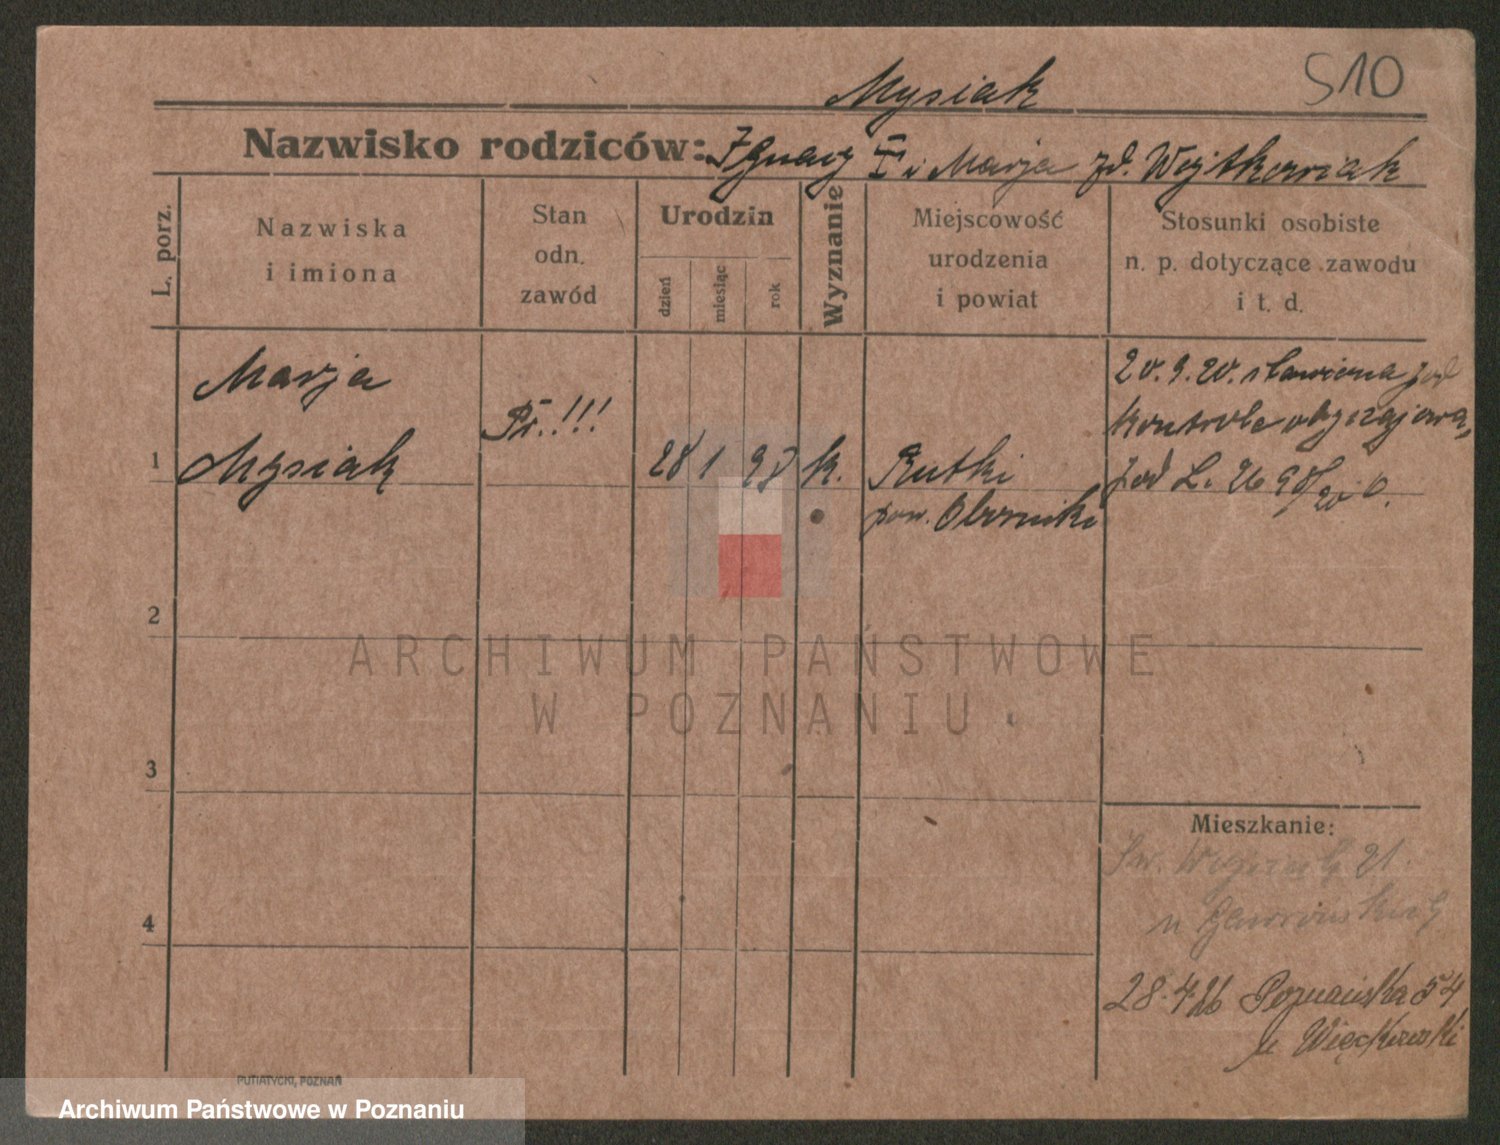 510
Mysiak
Nazwisko rodziców: Ignacy i Marja zd. Wojtkowiak
L. porz.
Nazwiska
i imiona
Stan
odn.
zawód
Urodzin
dzień
miesiąc
rok
Wyznanie
Miejscowość
urodzenia
i powiat
Stosunki osobiste
n. p. dotyczące zawodu
i t. d.
1
Marja
Mysiak
Pr.!!!
28 1 98
k.
Rutki
pow. Oborniki
20.9.20. stawiona pod
kontrolę obyczajową,
pod L.
2
3
4
ARCHIWUM PAŃSTWOWE
W POZNANIU
Mieszkanie:
21.
u
28.4.26 Poznańska 54
u Więckowski
PUTIATYCKI, POZNAŃ
Archiwum Państwowe w Poznaniu